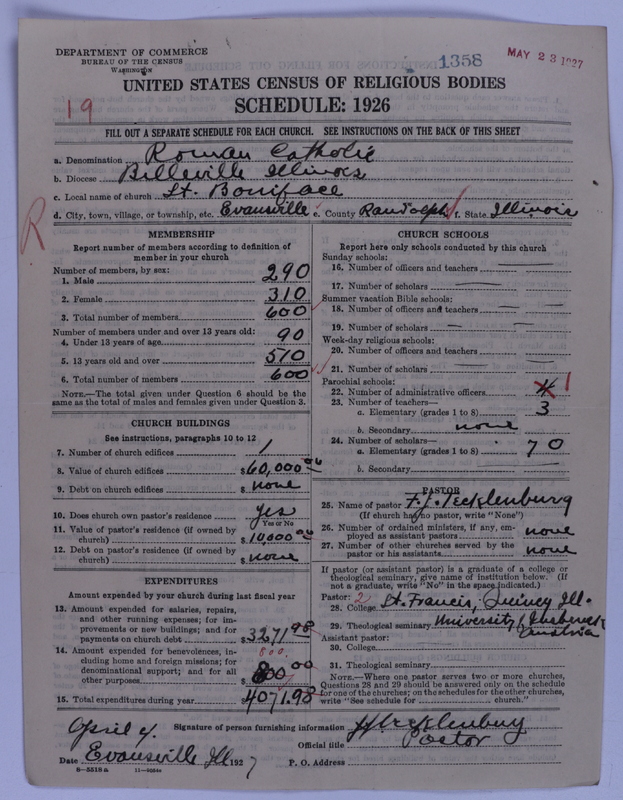 DEPARTMENT OF COMMERCE
BUREAU OF THE CENSUS
WASHINGTON
1358
MAY 23 1927
UNITED STATES CENSUS OF RELIGIOUS BODIES
SCHEDULE: 1926
19
FILL OUT A SEPARATE SCHEDULE FOR EACH CHURCH. SEE INSTRUCTIONS ON THE BACK OF THIS SHEET
a. Denomination Roman Catholic
b. Diocese Belleville Illinois
c. Local name of church St. Boniface
d. City, town, village, or township, etc. Evansville e. County Randolph f. State Illinois
R
MEMBERSHIP
Report number of members according to definition of
member in your church
Number of members, by sex:
1. Male 290
2. Female 310
3. Total number of members 600
Number of members under and over 13 years old:
4. Under 13 years of age 90
5. 13 years old and over 510
6. Total number of members 600
NOTE.—The total given under Question 6 should be
same as the total of males and females given under Question 3.
CHURCH BUILDINGS
See instructions, paragraphs 10 to 12
7. Number of church edifices 1
8. Value of church edifices $60,000 00
9. Debt on church edifices $ none
10. Does church own pastor's residence yes
Yes or No
11. Value of pastor's residence (if owned by
church) $10,000 00
12. Debt on pastor's residence (if owned by
church) $ none
EXPENDITURES
Amount expended by your church during last fiscal year
13. Amount expended for salaries, repairs,
and other running expenses; for im-
provements or new buildings; and for
payments on church debt $3271 98
14. Amount expended for benevolences, in-
cluding home and foreign missions; for
denominational support; and for all
other purposes $ 800 00
800.
15. Total expenditures during year $4071.98
CHURCH SCHOOLS
Report here only schools conducted by this church
Sunday schools:
16. Number of officers and teachers
17. Number of scholars
Summer vacation Bible schools:
18. Number of officers and teachers
19. Number of scholars
Week-day religious schools:
20. Number of officers and teachers
21. Number of scholars
Parochial schools:
22. Number of administrative officers 4 1
23. Number of teachers—
a. Elementary (grades 1 to 8) 3
b. Secondary none
24. Number of scholars—
a. Elementary (grades 1 to 8) 70
b. Secondary
PASTOR
25. Name of pastor F. J. Tecklenburg
(If church has no pastor, write "None")
26. Number of ordained ministers, if any, em-
ployed as assistant pastors none
27. Number of other churches served by the
pastor or his assistants none
If pastor (or assistant pastor) is a graduate of a college or
theological seminary, give name of institution below. (If
not a graduate, write "No" in the space indicated.)
Pastor: 2
28. College St. Francis, Quincy Ill.
29. Theological seminary University of Innsbruck
Austria
Assistant pastor:
30. College
31. Theological seminary
NOTE.—Where one pastor serves two or more churches,
Questions 28 and 29 should be answered only on the schedule
for one of the churches; on the schedules for the other churches,
write "See schedule for church."
April 4. Signature of person furnishing information FJTecklenburg
Official title Pastor
Date Evansville Ill 1927 P. O. Address
8—5518 a